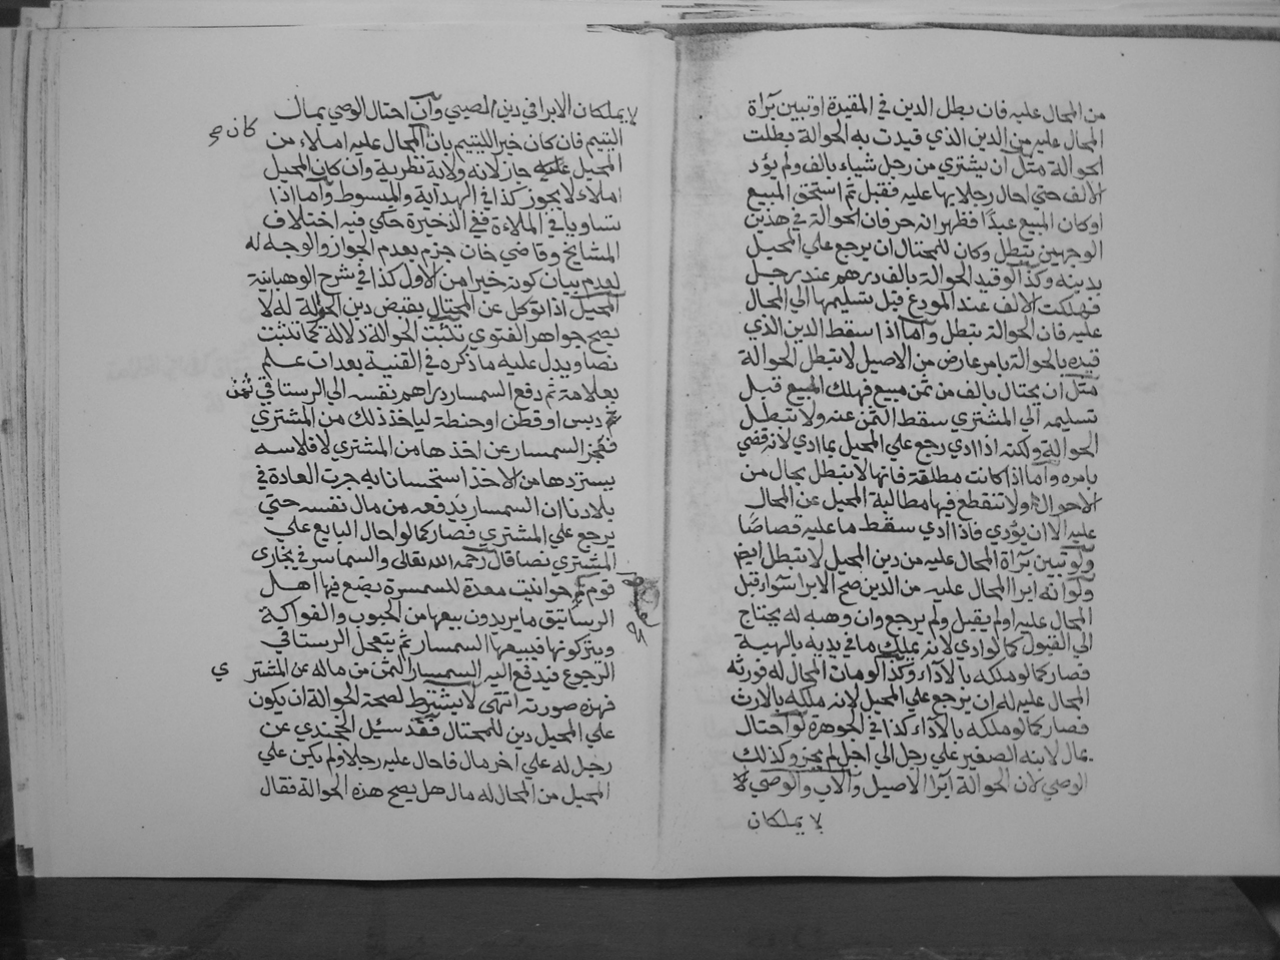 من المحال عليه فان بطل الدين في المقيدة او تبين برآة
المحال عليه من الدين الذي قيدت به الحوالة بطلت
الحوالة مثل ان يشتري من رجل شياء بالف ولم يؤد
الالف حتى احال رجلا بها عليه فقبل ثم استحق المبيع
او كان المبيع عبدًا فظهر انه حر فان الحوالة في هذين
الوجهين تبطل وكان للمحتال ان يرجع علي المحيل
بدينه وكذا لو قيد الحوالة بالف درهم عند رجل
فهلكت الالف عند المودع قبل تسليمها الي المحال
عليه فان الحوالة تبطل وآما اذا سقط الدين الذي
قيده بالحوالة بامر عارض من الاصيل لا تبطل الحوالة
مثل ان يحتال بالف من ثمن مبيع فهلك المبيع قبل
تسليمه الي المشتري سقط الثمن عنه ولا تبطل
الحوالة ولكنه اذا ادي رجع علي المحيل بما ادي لانه قضي
بامره وآما اذا كانت مطلقة فانها لا تبطل بحال من
الاحوال ولا تنقطع فيها مطالبة المحيل عن المحال
عليه الا ان يؤدي فاذا ادي سقط ما عليه قصاصًا
ولو تبين برآة المحال عليه من دين المحيل لا تبطل ايض
ولو انه ابرا المحال عليه من الدين صح الابرا سواء قبل
المحال عليه او لم يقبل ولم يرجع وان وهبه له يحتاج
الي القبول كما لو ادي لانه يملك ما في يديه بالهبة
فصار كما لو ملكه بالاداء وكذا لو مات المحال له فورثه
المحال عليه له ان يرجع علي المحيل لانه ملكه بالارث
فصار كما لو ملكه بالاداء كذا في الجوهرة لو احتال
بمال لابنه الصغير علي رجل الي اجل لم يجز وكذلك
الوصي لان الحوالة آبرا الاصيل والاب والوصي لا
لا يملكان
لا يملكان الابرا في دين الصبي وآن احتال الوصي بمال
اليتيم فان كان خيرا لليتيم بان المحال عليه املاء من
كان صح
المحيل جاز لانه ولاية نظرية وان كان المحيل
املاء لا يجوز كذا في الهداية والمبسوط وآما اذا
تساويا في الملاءة ففي الذخيرة حكي فيه اختلاف
المشايخ وقاضي خان جزم بعدم الجواز والوجه له
لعدم بيان كونه خيرا من الاول كذا في شرح الوهبانية
المحيل اذا توكل عن المحتال بقبض دين الحوالة له لا
يصح جواهر الفتوي تثبت الحوالة دلالة كما تثبت
نصا ويدل عليه ما ذكره في القنية بعدات علم
بعلامة ثم دفع السمسار دراهم نفسه الي الرستاقي ثمن
دبس او قطن او حنطة لياخذ ذلك من المشتري
فعجز السمسار عن اخذها من المشتري لافلاسه
يستردها من الاخذ استحسانا به جرت العادة في
بلادنا ان السمسار يدفعه من مال نفسه حتي
يرجع علي المشتري فصار كما لو احال البايع علي
المشتري نصا قال رحمه الله تعالى والسماسر في بخارى
قوم لهم حوانيت معدة للسمسرة يضع فيها اهل
الرساتيق ما يريدون بيعها من الحبوب والفواكه
ويتركونها فيبيعها السمسار ثم يتعجل الرستاقي
الرجوع فيدفع اليه السمسار الثمن من ماله عن المشتري
فهذه صورته انتهى لا يشترط لصحة الحوالة ان يكون
علي المحيل دين للمحتال فقد سئل الخجندي عن
رجل له علي اخر مال فاحال عليه رجلا ولم يكن علي
المحيل من المحال له مال هل يصح هذه الحوالة فقال